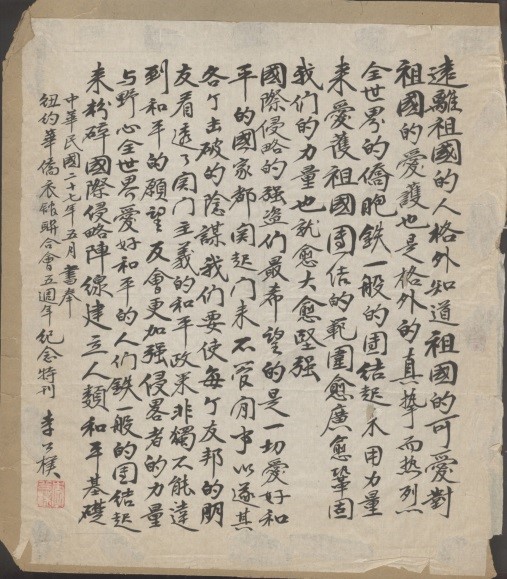 遠離祖國的人格外知道祖國的可愛對
祖國的愛護也是格外的真摯而热烈
全世界的僑胞鉄一般的团结起來用力量
来爱護祖國团结的範圍愈廣愈鞏固
我们的力量也就愈大愈堅强
國際侵略的强盗们最希望的是一切爱好和
平的國家都関起门来不管闲事以遂其
各个击破的陰謀我们要使每个友邦的朋
友看透了関门主義的和平政策非獨不能達
到和平的願望反會更加强侵畧者的力量
与野心全世界爱好和平的人们鉄一般的团结起
来粉碎國際侵略陣線建立人類和平基礎
中華民國二十七年五月書奉
纽约華僑衣舘聯合會五週年纪念特刊 李公樸